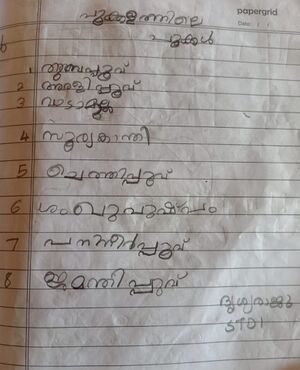 papergrid
Date: / /
പൂക്കളത്തിലെ
പൂക്കൾ
1 തുമ്പപ്പൂവ്
2 അരളിപ്പൂവ്
3 വാടാമുല്ല
4 സൂര്യകാന്തി
5 ചെത്തിപ്പൂവ്
6 ശംഖുപുഷ്പം
7 പനിനീർപ്പൂവ്
8 ജമന്തിപ്പൂവ്
STD 1